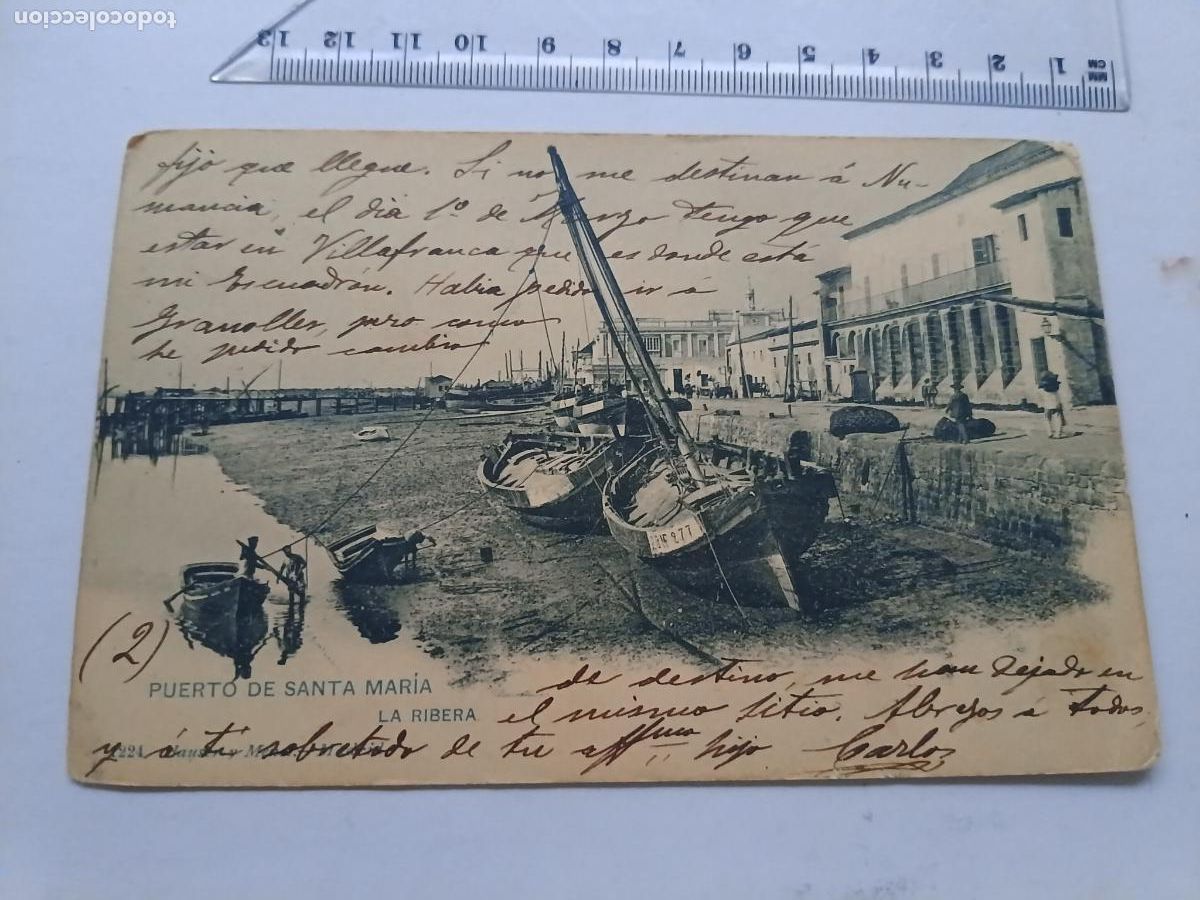 todocoleccion
13 12 11 10 9 8 7 6 5 4 3 2 1 MM CM
fijo que llegue. Si no me destinan á Nu-
mancia, el dia 1º de Marzo tengo que
estar en Villafranca que es donde está
mi Escuadrón. Habia pedido ir á
Granoller, pero como
he pedido cambio
277
(2)
PUERTO DE SANTA MARÍA
LA RIBERA
de destino, me han dejado en
el mismo sitio. Abrazos á todos,
y á tí sobretodo de tu affmo hijo Carlos
1224